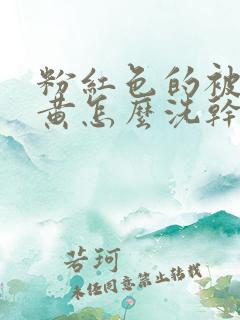 粉紅色的被
黃怎麼洗幹
若珂
未經同意禁止轉載